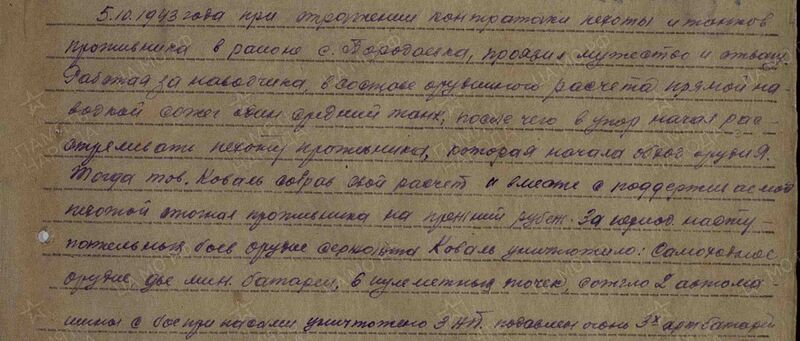 5.10.1943 года при отражении контратаки пехоты и танков
противника в районе с. Бородаевка, проявил мужество и отвагу.
Работая за наводчика, в составе орудийного расчета прямой на-
водкой сжег один средний танк, после чего в упор начал рас-
стреливать пехоту противника, которая начала обход орудия.
Тогда тов. Коваль собрав свой расчет и вместе с поддерживаемой
пехотой отогнал противника на прежний рубеж. За период насту-
пательных боев орудие сержанта Коваль уничтожило: Самоходное
орудие, две мин. батареи, 6 пулеметных точек, сожгло 2 автома-
шины с боеприпасами уничтожено 3 НП. подавлен огонь 3х арт батарей